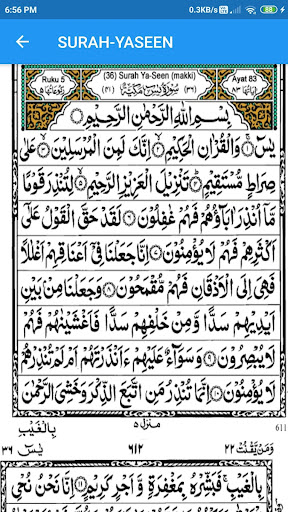 6:56 PM 0.3KB/s
SURAH-YASEEN
Ruku 5 (36) Surah Ya-Seen (makki) Ayat 83
بِسْمِ اللّٰهِ الرَّحْمٰنِ الرَّحِيْمِ
يٰسٓ وَالْقُرْاٰنِ الْحَكِيْمِ اِنَّكَ لَمِنَ الْمُرْسَلِيْنَ عَلٰى
صِرَاطٍ مُّسْتَقِيْمٍ تَنْزِيْلَ الْعَزِيْزِ الرَّحِيْمِ لِتُنْذِرَ قَوْمًا
مَّاۤ اُنْذِرَ اٰبَآؤُهُمْ فَهُمْ غٰفِلُوْنَ لَقَدْ حَقَّ الْقَوْلُ عَلٰۤى
اَكْثَرِهِمْ فَهُمْ لَا يُؤْمِنُوْنَ اِنَّا جَعَلْنَا فِيْۤ اَعْنَاقِهِمْ اَغْلٰلًا
فَهِيَ اِلَى الْاَذْقَانِ فَهُمْ مُّقْمَحُوْنَ وَجَعَلْنَا مِنْۢ بَيْنِ
اَيْدِيْهِمْ سَدًّا وَّمِنْ خَلْفِهِمْ سَدًّا فَاَغْشَيْنٰهُمْ فَهُمْ
لَا يُبْصِرُوْنَ وَسَوَآءٌ عَلَيْهِمْ ءَاَنْذَرْتَهُمْ اَمْ لَمْ تُنْذِرْهُمْ
لَا يُؤْمِنُوْنَ اِنَّمَا تُنْذِرُ مَنِ اتَّبَعَ الذِّكْرَ وَخَشِيَ الرَّحْمٰنَ
بِالْغَيْبِ منزل ۵ 611
يٰسٓ ۳۶ ۶۱۲ وَمَنْ يَّقْنُتْ ۲۲
بِالْغَيْبِ فَبَشِّرْهُ بِمَغْفِرَةٍ وَّاَجْرٍ كَرِيْمٍ اِنَّا نَحْنُ نُحْيِ